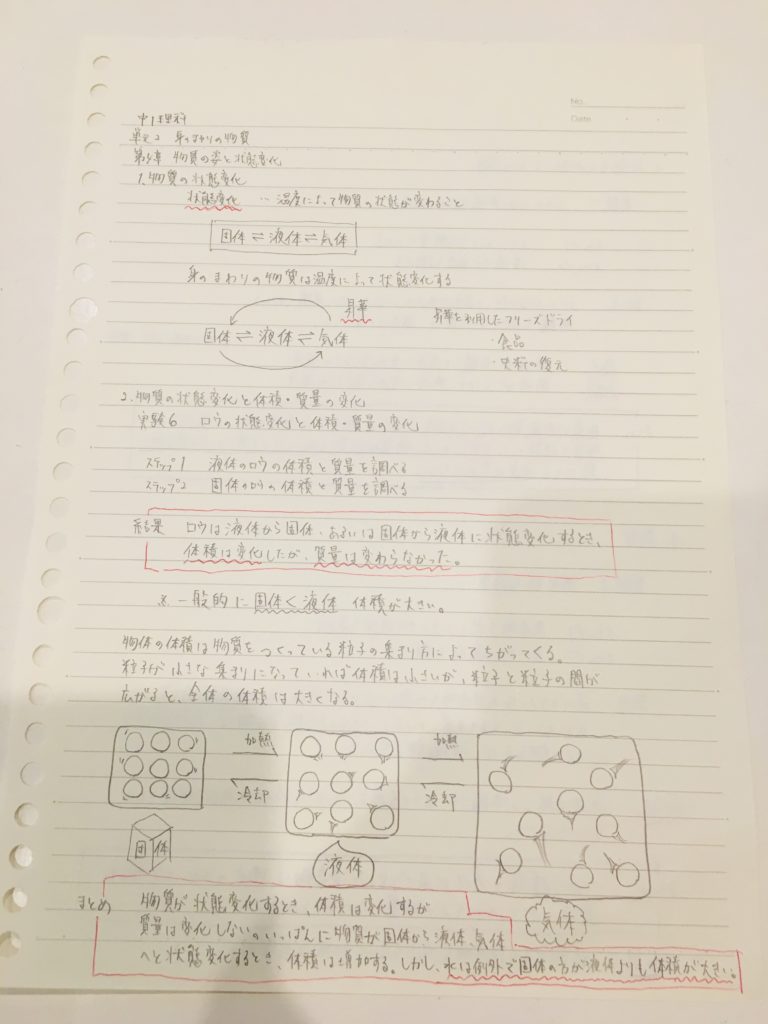 No.
Date
中1理科
単元2 身のまわりの物質
第4章 物質の姿と状態変化
1.物質の状態変化
状態変化 … 温度によって物質の状態が変わること
固体⇌液体⇌気体
身のまわりの物質は温度によって状態変化する
昇華
固体⇌液体⇌気体
昇華を利用したフリーズドライ
・食品
・史料の復元
2.物質の状態変化と体積・質量の変化
実験6 ロウの状態変化と体積・質量の変化
ステップ1 液体のロウの体積と質量を調べる
ステップ2 固体のロウの体積と質量を調べる
結果 ロウは液体から固体、あるいは固体から液体に状態変化するとき、
体積は変化したが、質量は変わらなかった。
※一般的に固体<液体 体積が大きい。
物体の体積は物質をつくっている粒子の集まり方によってちがってくる。
粒子が小さな集まりになっていれば体積は小さいが、粒子と粒子の間が
広がると、全体の体積は大きくなる。
加熱 加熱
冷却 冷却
固体
液体
気体
まとめ 物質が状態変化するとき、体積は変化するが
質量は変化しない。いっぱんに物質が固体から液体、気体
へと状態変化するとき、体積は増加する。しかし、水は例外で固体の方が液体よりも体積が大きい。